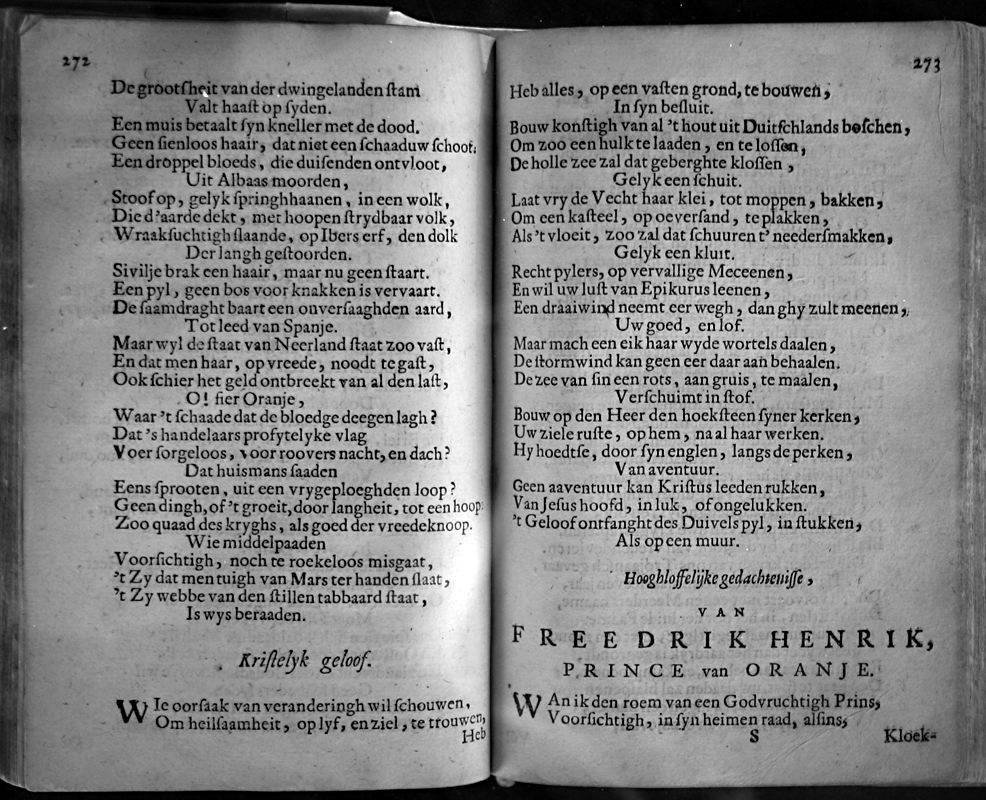 272
De grootſheit van der dwingelanden ſtam
Valt haaſt op ſyden.
Een muis betaalt ſyn kneller met de dood.
Geen ſienloos haair, dat niet een ſchaaduw ſchoot.
Een droppel bloeds, die duiſenden ontvloot,
Uit Albaas moorden,
Stoof op, gelyk ſpringhhaanen, in een wolk,
Die d'aarde dekt, met hoopen ſtrydbaar volk,
Wraakſuchtigh ſlaande, op Ibers erf, den dolk
Der langh geſtoorden.
Sivilje brak een haair, maar nu geen ſtaart.
Een pyl, geen bos voor knakken is vervaart.
De ſaamdraght baart een onverſaaghden aard,
Tot leed van Spanje.
Maar wyl de ſtaat van Neerland ſtaat zoo vaſt,
En dat men haar, op vreede, noodt te gaſt,
Ook ſchier het geld ontbreekt van al den laſt,
O! fier Oranje,
Waar 't ſchaade dat de bloedge deegen lagh?
Dat 's handelaars profytelyke vlag
Voer ſorgeloos, voor roovers nacht, en dach?
Dat huismans ſaaden
Eens ſprooten, uit een vrygeploeghden loop?
Geen dingh, of 't groeit, door langheit, tot een hoop:
Zoo quaad des kryghs, als goed der vreedeknoop.
Wie middelpaaden
Voorſichtigh, noch te roekeloos misgaat,
't Zy dat men tuigh van Mars ter handen ſlaat,
't Zy webbe van den ſtillen tabbaard ſtaat,
Is wys beraaden.
Kriſtelyk geloof.
WIe oorſaak van veranderingh wil ſchouwen,
Om heilſaamheit, op lyf, en ziel, te trouwen,
Heb
273
Heb alles, op een vaſten grond, te bouwen,
In ſyn beſluit.
Bouw konſtigh van al 't hout uit Duitſchlands boſchen,
Om zoo een hulk te laaden, en te loſſen,
De holle zee zal dat geberghte kloſſen,
Gelyk een ſchuit.
Laat vry de Vecht haar klei, tot moppen, bakken,
Om een kaſteel, op oeverſand, te plakken,
Als 't vloeit, zoo zal dat ſchuuren t' neederſmakken,
Gelyk een kluit.
Recht pylers, op vervallige Meceenen,
En wil uw luſt van Epikurus leenen,
Een draaiwind neemt eer wegh, dan ghy zult meenen,
Uw goed, en lof.
Maar mach een eik haar wyde wortels daalen,
De ſtormwind kan geen eer daar aan behaalen.
De zee van ſin een rots, aan gruis, te maalen,
Verſchuimt in ſtof.
Bouw op den Heer den hoekſteen ſyner kerken,
Uw ziele ruſte, op hem, na al haar werken.
Hy hoedtſe, door ſyn englen, langs de perken,
Van aventuur.
Geen aaventuur kan Kriſtus leeden rukken,
Van Jeſus hoofd, in luk, of ongelukken.
't Geloof ontfanght des Duivels pyl, in ſtukken,
Als op een muur.
Hooghloffelijke gedachteniſſe,
VAN
FREEDRIK HENRIK,
PRINCE van ORANJE.
WAn ik den roem van een Godvruchtigh Prins,
Voorſichtigh, in ſyn heimen raad, alſins,
S
Kloek-